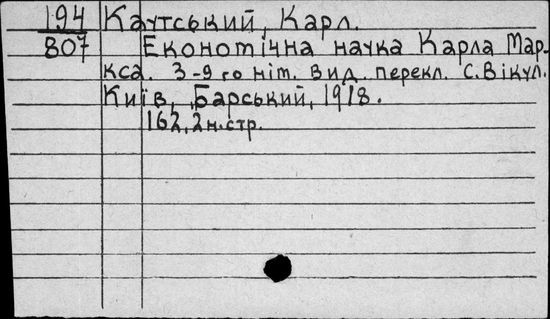 194 Каутський, Карл.
807 Економічна наука Карла Мар-
кса. З-9 го нім. вид. перекл. С. Вікул.
Київ, „Барський, 1918.
162, 2 н. стр.